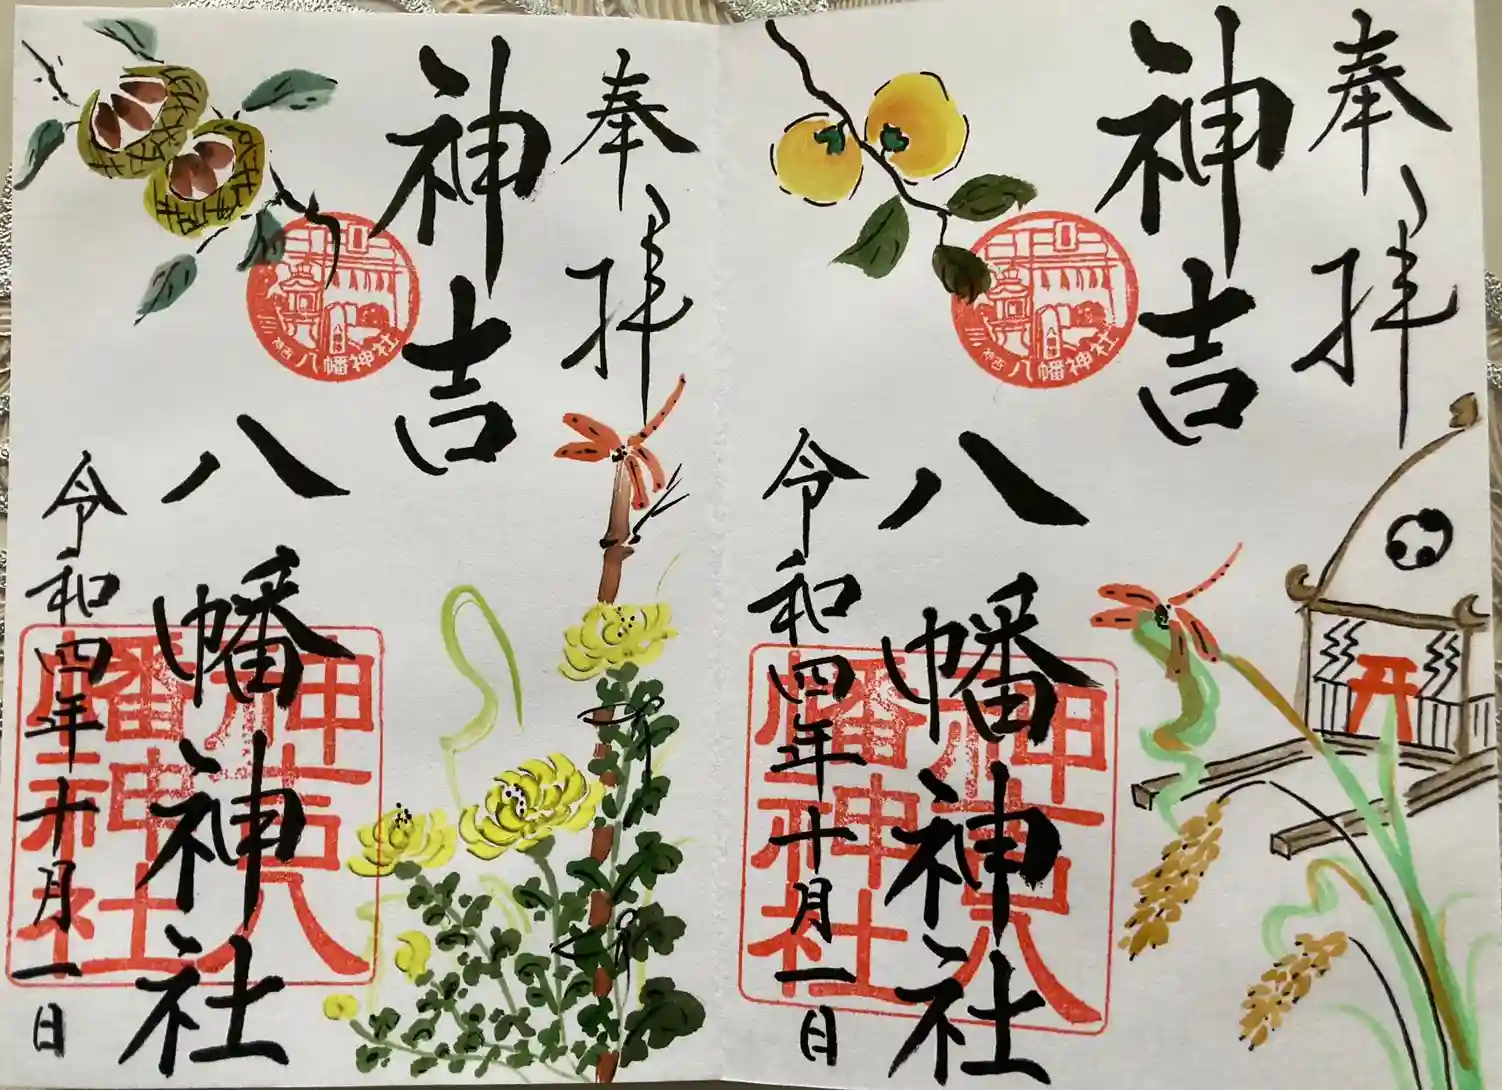 奉拝
神吉
八幡神社
令和四年十月一日
八幡神社
神吉八
幡神社
奉拝
神吉
八幡神社
令和四年十月一日
八幡神社
神吉八
幡神社